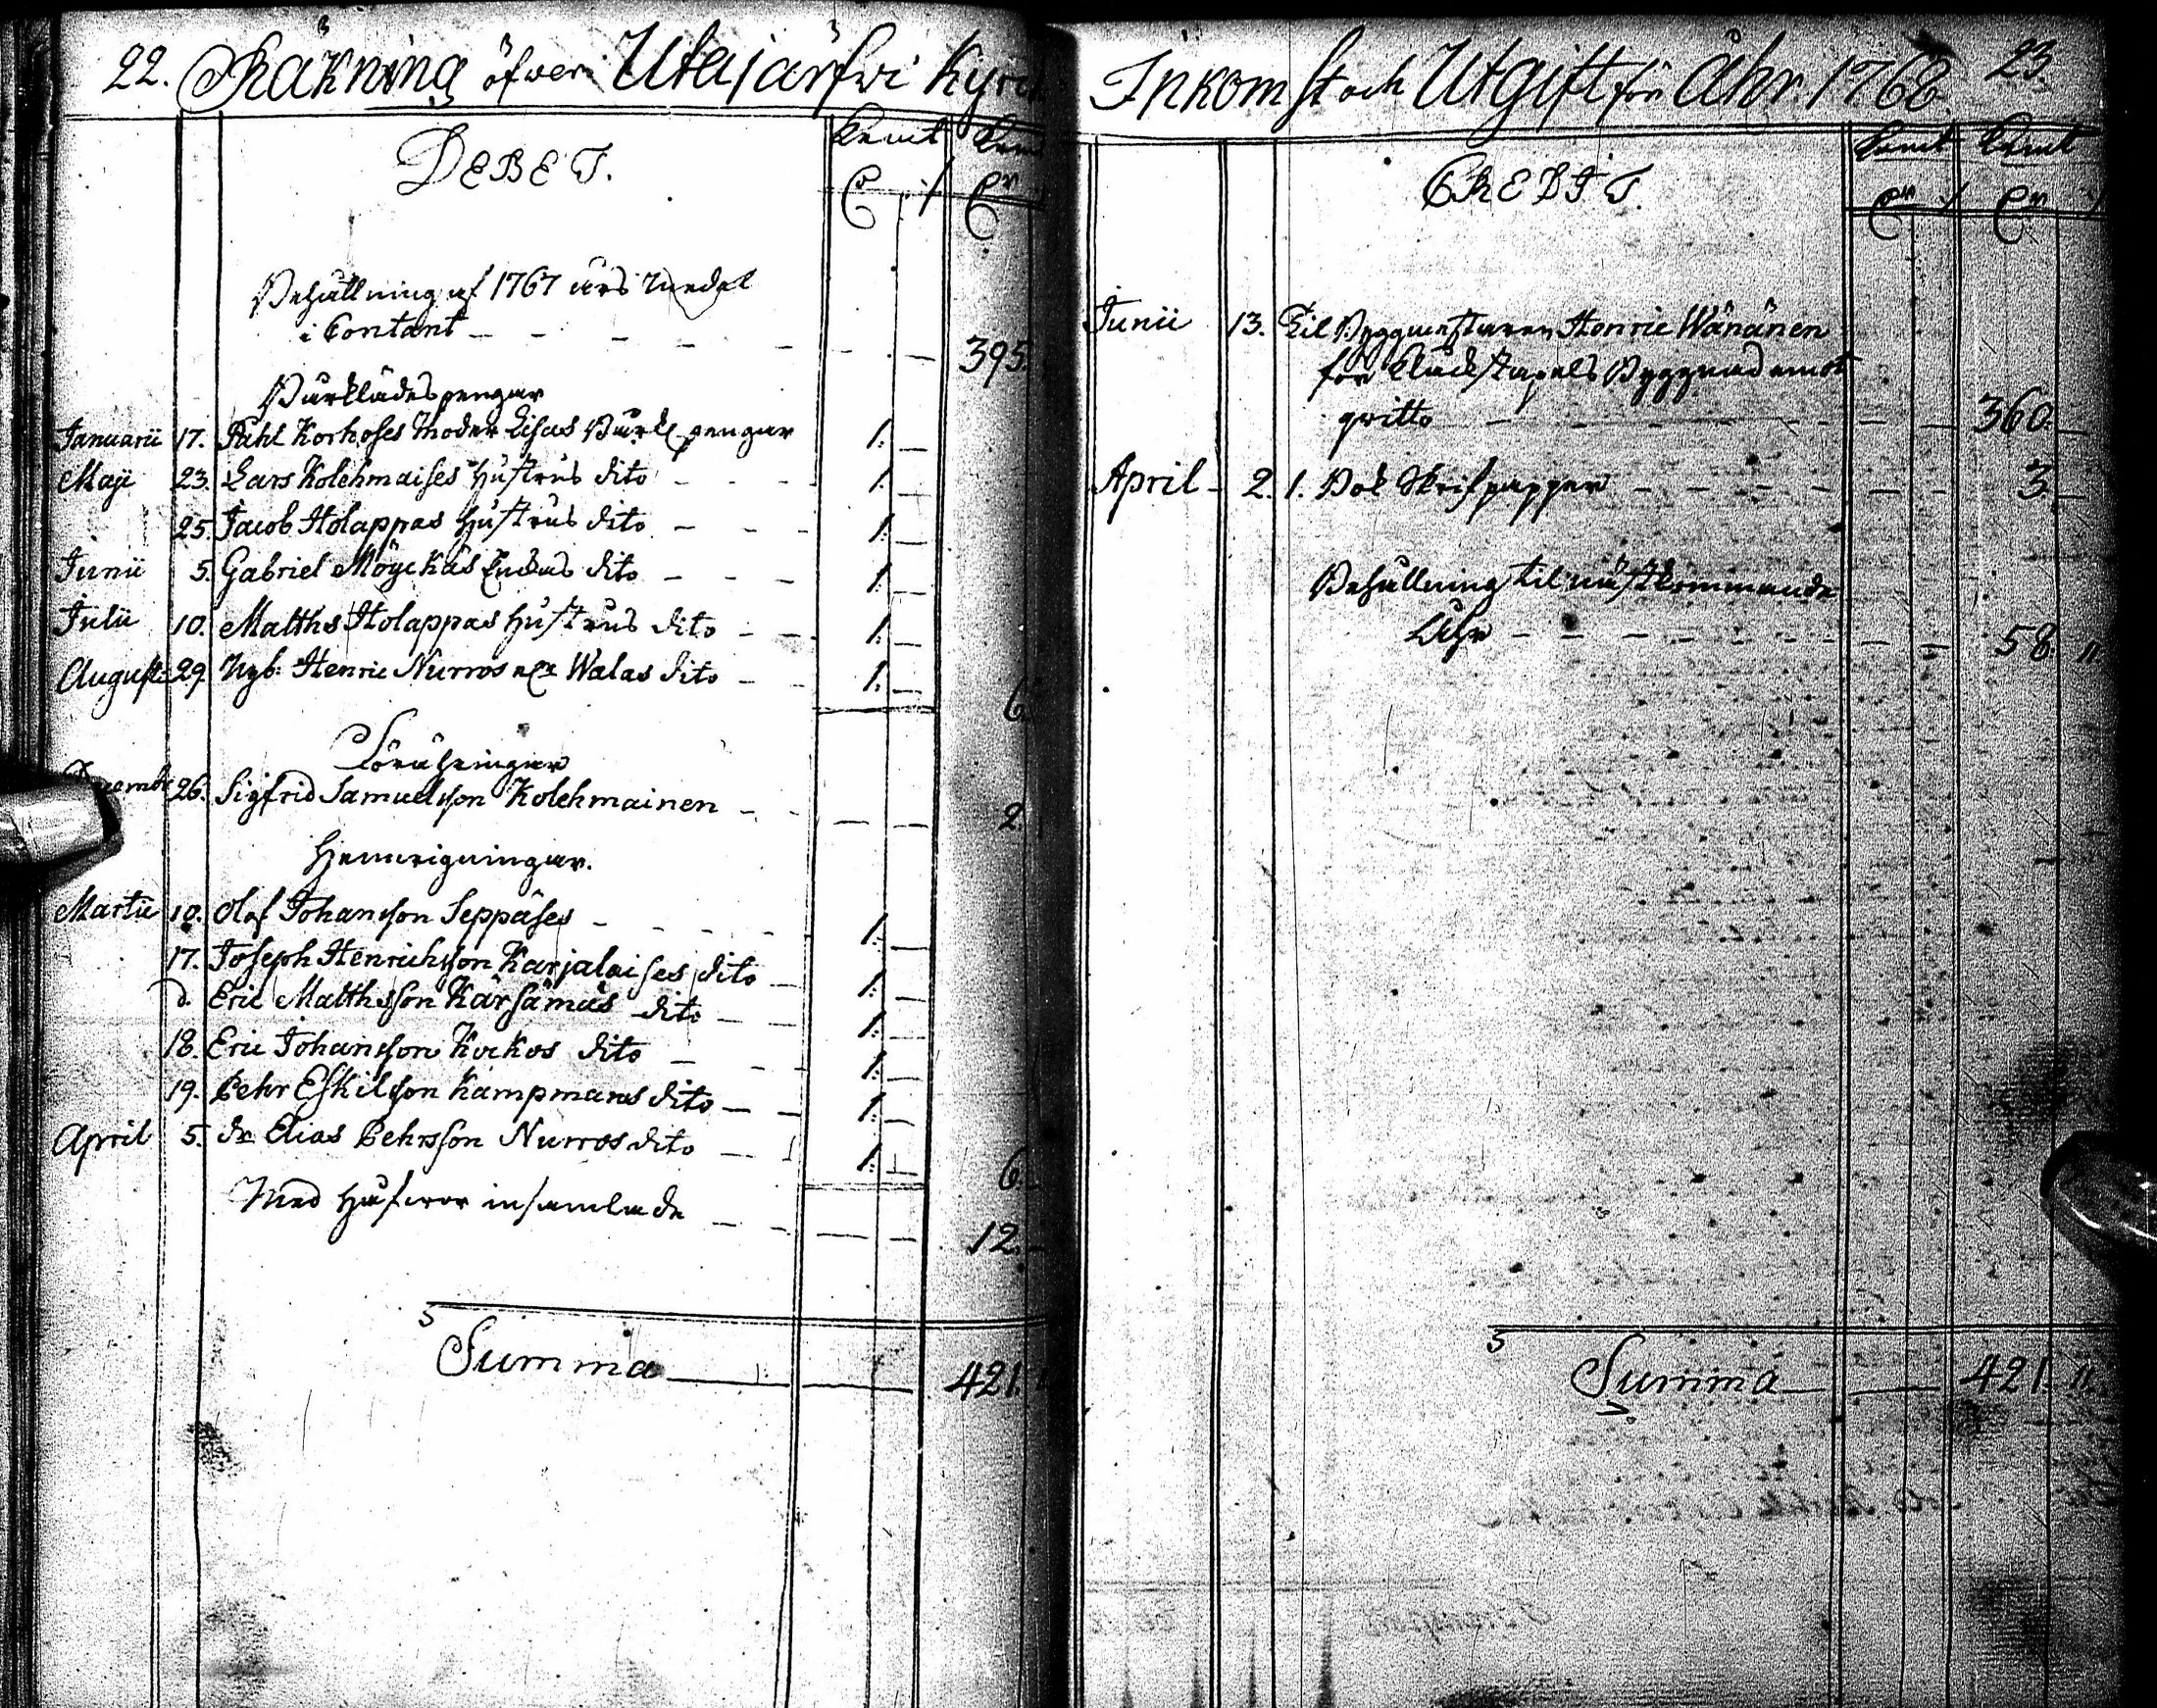 22. Räkning öfver Utajärfwi Kyrck
DEBET.
Kpmt
Behållning af 1767 års medel
i Contant 395.
Bårklädespengar
Januarii 17. Påhl Korhoses Moder Lisas Bårkl. pengar 1.
Maji 23. Lars Kolehmaises hustrus dito 1.
25. Jacob Holappas hustrus dito 1.
Junii 5. Gabriel Möyckäs dito 1.
Julii 10. Matths Holappas hustrus dito 1.
August: 29. Nyb: Henric Nurros Walas dito 1.
6.
26. Sigfrid Samuelsson Kolehmainen 2.
Martii 10. Olof Johansson Seppäses 1.
17. Joseph Henrichsson Karjalaises dito 1.
d. Eric Matthsson Kärsämäs dito 1.
18. Eric Johansson Kockos dito 1.
19. Pehr Eskilsson Kämpmans dito 1.
April 5. Elias Pehrsson Nurros dito 1.
6.
Med Håfwor insamlade 12.
Summa 421.
Inkomst och Utgift för Åhr 1768. 23.
CREDIT.
Kpmt Kpmt
Junii 13. Til Byggmästaren Henric Wänänen
för Klåckstapels Byggnad emot
qvitto 360.
April 2. 1. Bok Skrifpapper 3.
Behållning til nästkommande
Åhr 58. 11.
Summa 421. 11.